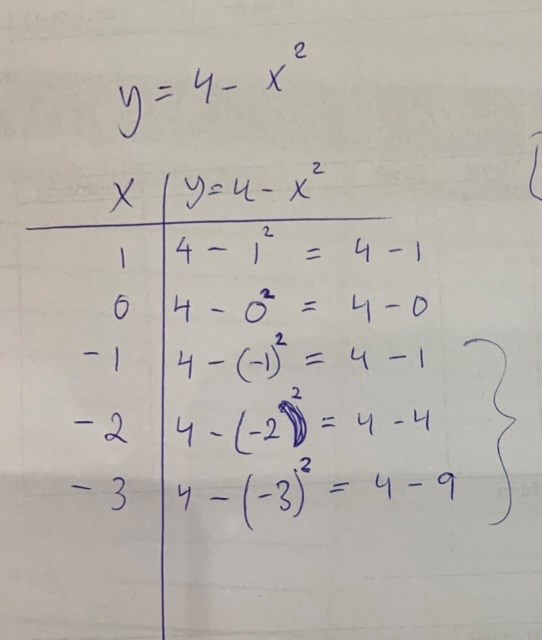 y = 4 - x²
x | y = 4 - x²
1 | 4 - 1² = 4 - 1
0 | 4 - 0² = 4 - 0
-1 | 4 - (-1)² = 4 - 1
-2 | 4 - (-2)² = 4 - 4
-3 | 4 - (-3)² = 4 - 9